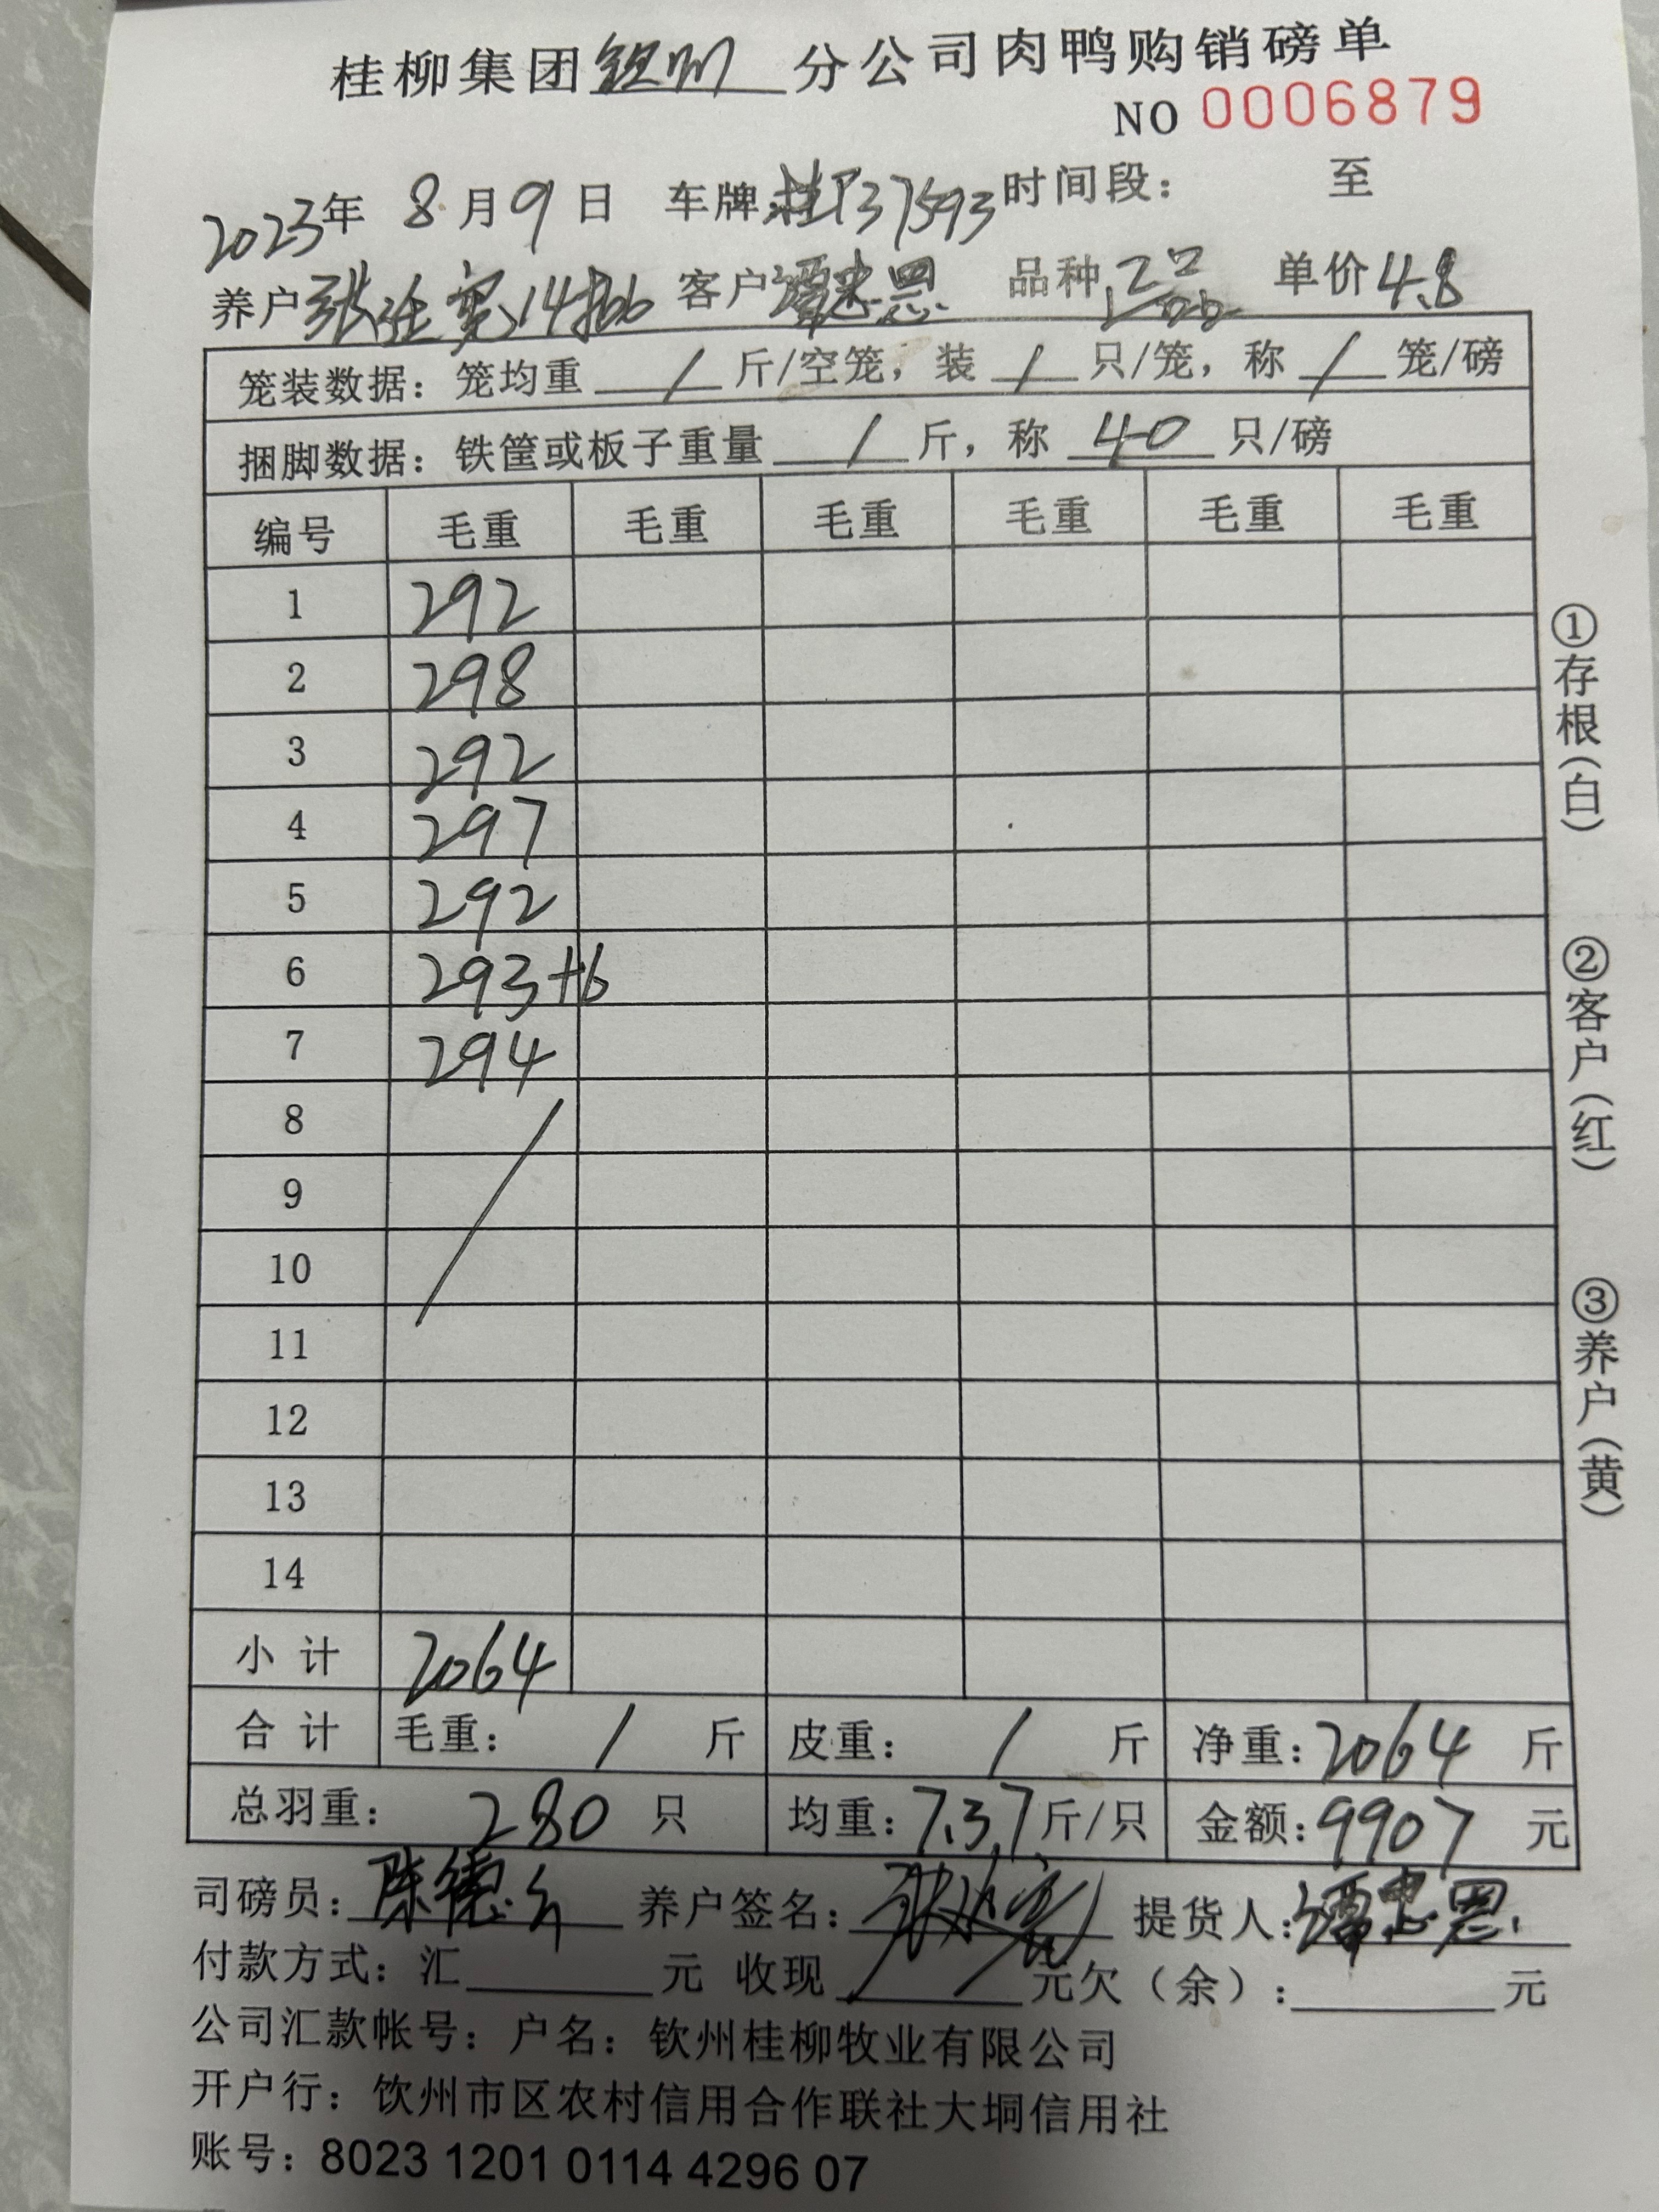 桂柳集团钦州分公司肉鸭购销磅单
NO 0006879
2023年 8月9日 车牌:桂P37593 时间段: 至
养户 张 宽14批 客户 谭忠恩 品种 二品 单价4.8
笼装数据: 笼均重 / 斤/空笼, 装 / 只/笼, 称 / 笼/磅
捆脚数据: 铁筐或板子重量 / 斤, 称 40 只/磅
编号 毛重 毛重 毛重 毛重 毛重 毛重
1 292
2 298
3 292
4 297
5 292
6 293+6
7 294
8
9
10
11
12
13
14
小计 2064
合计 毛重: / 斤 皮重: / 斤 净重: 2064 斤
总羽重: 280 只 均重: 7.37斤/只 金额: 9907 元
司磅员: 陈德 养户签名: 提货人: 谭忠恩
付款方式: 汇 元 收现 元欠(余): 元
公司汇款帐号: 户名: 钦州桂柳牧业有限公司
开户行: 饮州市区农村信用合作联社大垌信用社
账号: 8023 1201 0114 4296 07
①存根(白)
②客户(红)
③养户(黄)